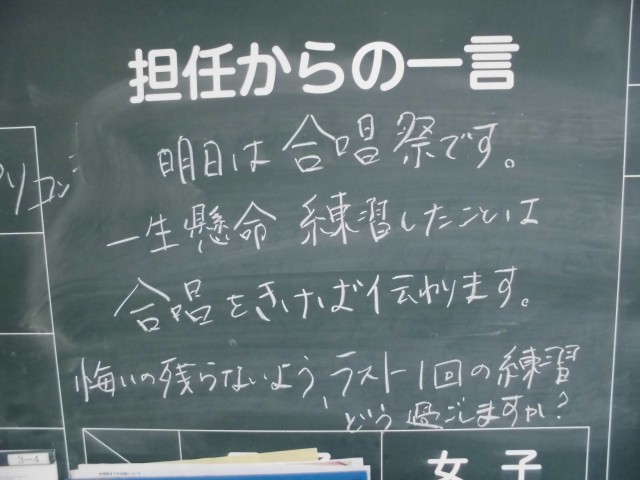 担任からの一言
明日は合唱祭です。
一生懸命 練習したことは
合唱をきけば伝わります。
悔いの残らないよう、ラスト1回の練習
どう過ごしますか?
リコン
女子
3-4